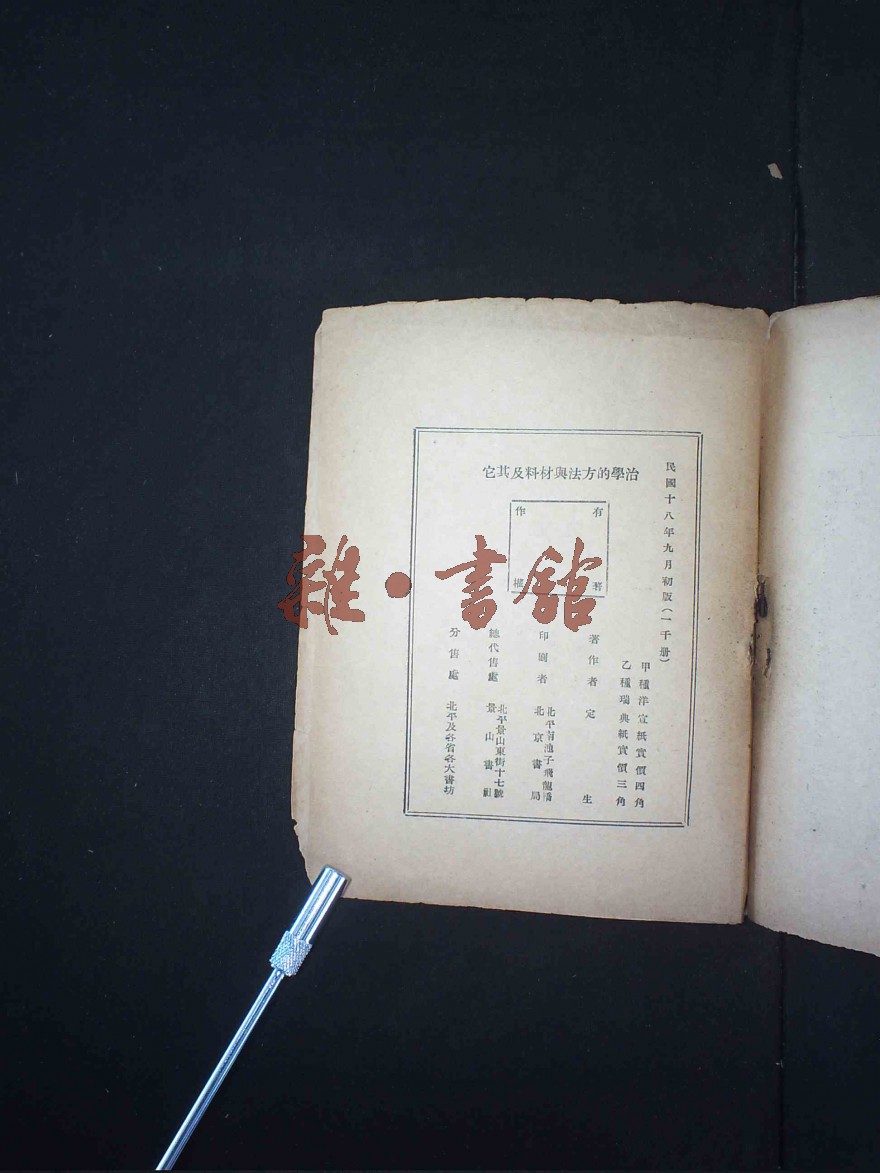 民國十八年九月初版(一千册)
甲種洋宣紙實價四角
乙種瑞典紙實價三角
治學的方法與材料及其它
有著
作權
著作者 定生
印刷者
北平南池子飛龍橋
北京書局
總代售處
北平景山東街十七號
景山書社
分售處 北平及各省各大書坊
雜·書館